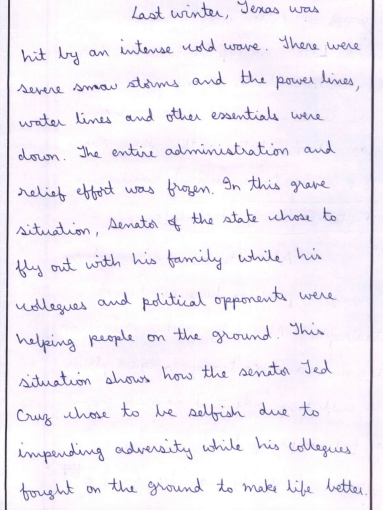 Last winter, Texas was
hit by an intense cold wave. There were
severe snow storms and the power lines,
water lines and other essentials were
down. The entire administration and
relief effort was frozen. In this grave
situation, senator of the state chose to
fly out with his family while his
collegues and political opponents were
helping people on the ground. This
situation shows how the senator Ted
Cruz chose to be selfish due to
impending adversity while his collegues
fought on the ground to make life better.